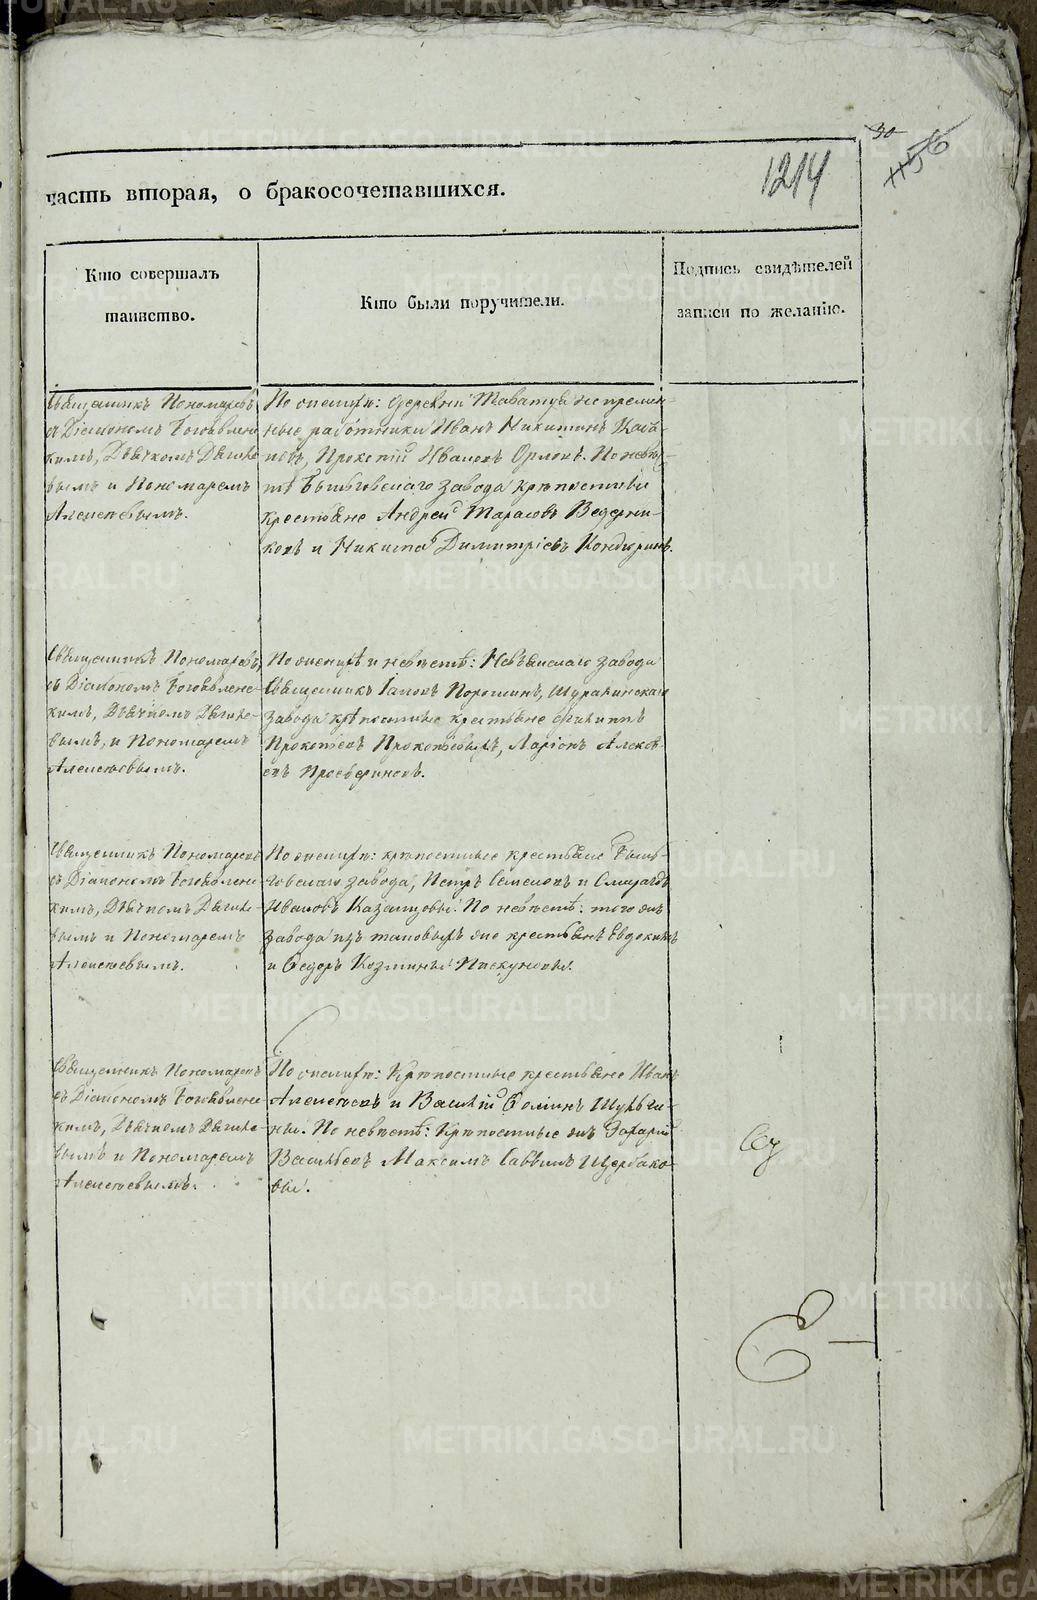 30
1214
часть вторая, о бракосочетавшихся.
Кто совершалъ
таинство.
Кто были поручители.
Подпись свидѣтелей
записи по желанію.
Священникъ Пономаревъ
съ Діакономъ Богоявленс-
кимъ, Дьячкомъ
вымъ и Пономаремъ
Алексѣевымъ.
По женихѣ: деревни Таватуя непремѣн-
ные работники Иванъ Никитинъ
Ивановъ Орловъ. По невѣс-
тѣ Быньговскаго завода крѣпостные
крестьяне Андрей Тарасовъ Ведерни-
ковъ и Никита Димитріевъ Кондюринъ.
Священникъ Пономаревъ
съ Діакономъ Богоявленс-
кимъ, Дьячкомъ
вымъ, и Пономаремъ
Алексѣевымъ.
По женихѣ и невѣстѣ: Невьянскаго завода
Священникъ Порошинъ, Шуралинскаго
завода крѣпостные крестьяне
Прокопьевымъ, Ларіонъ
евъ
Священникъ Пономаревъ
съ Діакономъ Богоявленс-
кимъ, Дьячкомъ
вымъ и Пономаремъ
Алексѣевымъ.
По женихѣ: крѣпостные крестьяне Быньг-
овскаго завода, Петръ Семеновъ и Смарагдъ
Ивановъ Казанцовы. По невѣстѣ: того же
завода изъ таковыхъ же крестьянъ Евдокимъ
и Ѳедоръ Козмины Пискуновы.
Священникъ Пономаревъ
съ Діакономъ Богоявленс-
кимъ, Дьячкомъ
вымъ и Пономаремъ
Алексѣевымъ.
По женихѣ: Крѣпостные крестьяне Иванъ
Алексѣевъ и Василій Ѳоминъ
ны. По невѣстѣ: Крѣпостные же Захарій
Васильевъ Максимъ Саввинъ Щербако-
вы.
METRIKI.GASO-URAL.RU